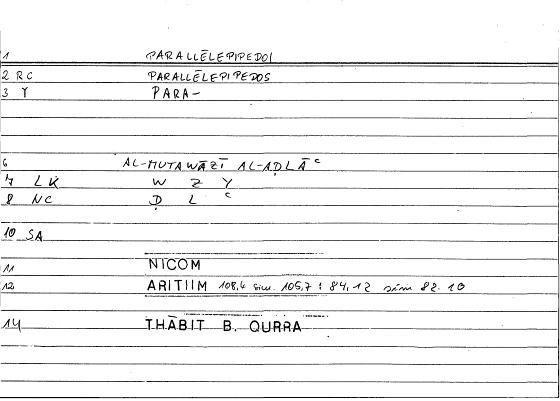 1 PARALLĒLEPIPEDOI
2 RC PARALLĒLEPIPEDOS
3 Y PARA-
6 AL-MUTAWĀZĪ AL-AḌLĀᶜ
7 LK W Z Y
8 NC Ḍ L ᶜ
10 SA
11 NICOM
12 ARITIIM 108,4 sim. 105,7 : 84,12 sim 82.10
14 THĀBIT B. QURRA